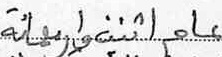 عام اثنين واربعمائة